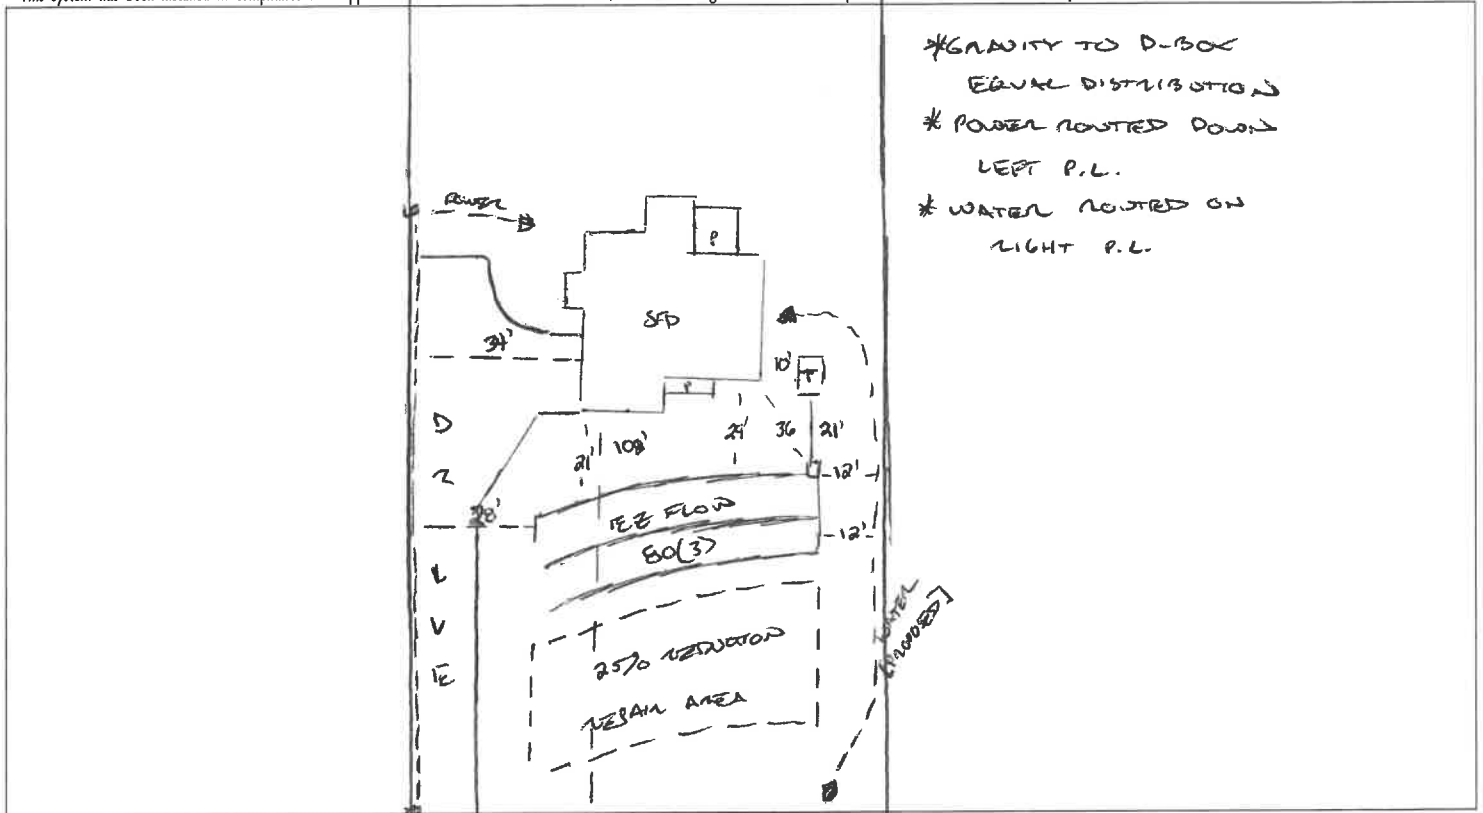 *GRAVITY TO D-BOX
EQUAL DISTRIBUTION
* POWER ROUTED DOWN
LEFT P.L.
* WATER ROUTED ON
RIGHT P.L.
POWER
P
SFD
34'
10'
T
P
D
R
I
V
E
21'
108'
36
21'
28'
12'
EZ FLOW
80(3)
12'
WATER
[PROPOSED]
25% REDUCTION
REPAIR AREA